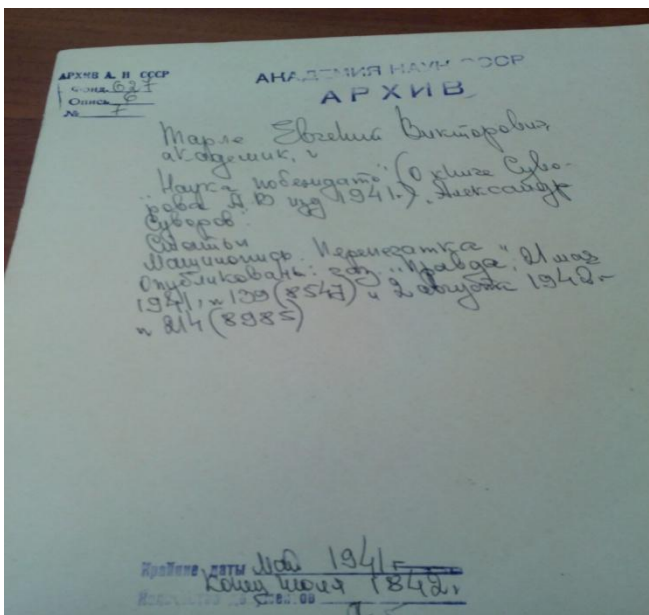 АРХИВ А. Н СССР
Фонд 627
Опись 6
№ 7
АКАДЕМИЯ НАУК СССР
АРХИВ
Тарле Евгений Викторович,
академик,
"Наука побеждать" (О книге Суво-
рова А.В изд 1941г.), "Александр
Суворов".
Статьи
Машинопись. Перепечатка
Опубликованы: газ. "Правда", 21 мая
1941, № 139 (8547) и 2 августа 1942г.
№ 214 (8985)
Крайние даты Май 1941 г.
Конец июля 1842г.